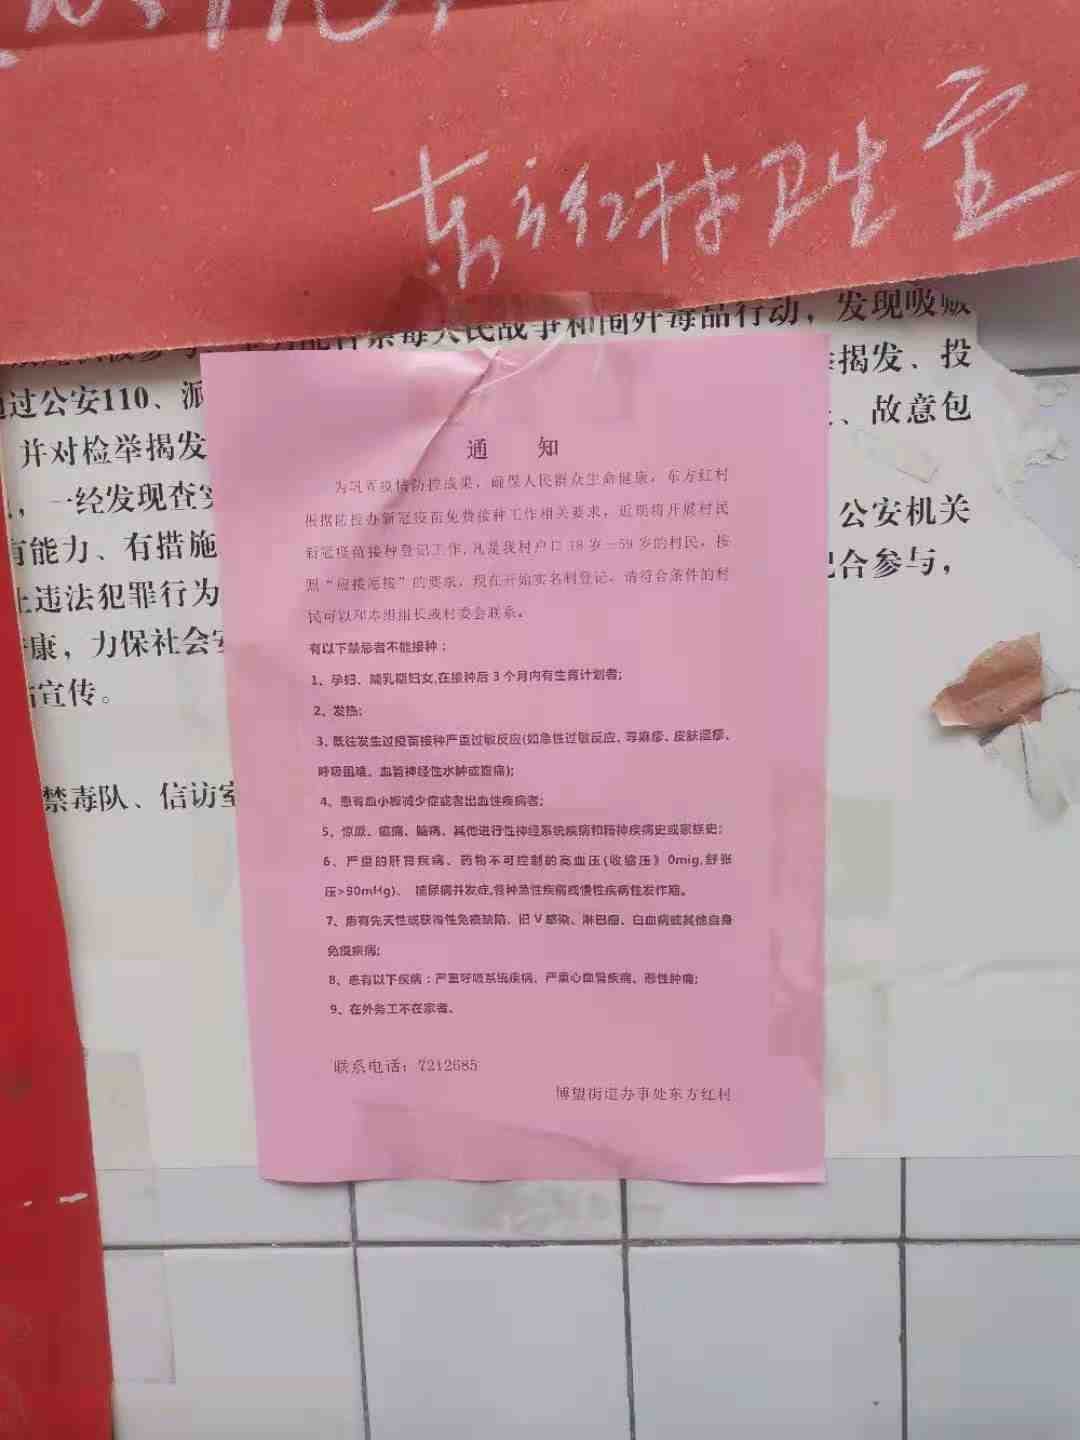 东方红村卫生室
禁毒人民战争和围歼毒品行动，发现吸贩
通过公安110、派
举揭发、投
并对检举揭发
、故意包
，一经发现查实
公安机关
有能力、有措施
配合参与，
止违法犯罪行为
康，力保社会安
宣传。
禁毒队、信访室
通 知
为巩固疫情防控成果，确保人民群众生命健康，东方红村
根据防控办新冠疫苗免费接种工作相关要求，近期将开展村民
新冠疫苗接种登记工作,凡是我村户口18岁—59岁的村民，按
照“应接尽接”的要求，现在开始实名制登记，请符合条件的村
民可以和本组组长或村委会联系。
有以下禁忌者不能接种：
1、孕妇、哺乳期妇女,在接种后3个月内有生育计划者;
2、发热;
3、既往发生过疫苗接种严重过敏反应(如急性过敏反应、荨麻疹、皮肤湿疹、
呼吸困难、血管神经性水肿或腹痛);
4、患有血小板减少症或者出血性疾病者;
5、惊厥、癫痫、脑病、其他进行性神经系统疾病和精神疾病史或家族史;
6、严重的肝肾疾病、药物不可控制的高血压(收缩压》0mig,舒张
压>90mHg)、糖尿病并发症,各种急性疾病或慢性疾病性发作期。
7、患有先天性或获得性免疫缺陷、旧V感染、淋巴瘤、白血病或其他自身
免疫疾病;
8、患有以下疾病：严重呼吸系统疾病、严重心血管疾病、恶性肿瘤;
9、在外务工不在家者。
联系电话：7212685
博望街道办事处东方红村